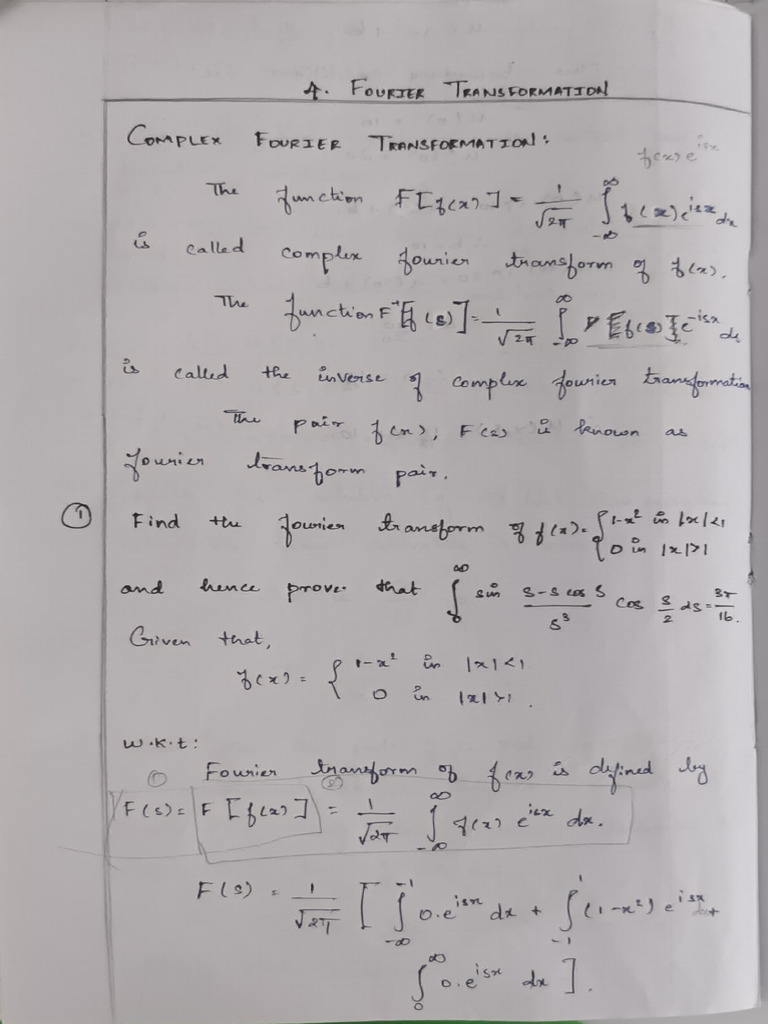 4. FOURIER TRANSFORMATION
COMPLEX FOURIER TRANSFORMATION:
f(x) e^{isx}
The function F[f(x)] = 1/√2π ∫_{-∞}^{∞} f(x) e^{isx} dx
is called complex fourier transform of f(x).
The function F^{-1}[f(s)] = 1/√2π ∫_{-∞}^{∞} F[f(s)] e^{-isx} ds
is called the inverse of complex fourier transformation
The pair f(x), F(s) is known as
fourier transform pair.
① Find the fourier transform of f(x) = { 1-x² in |x|<1
0 in |x|>1
and hence prove that ∫_{0}^{∞} sin s-s cos s / s³ cos s/2 ds = 3π/16.
Given that,
f(x) = { 1-x² in |x|<1
0 in |x|>1.
W.K.t:
① Fourier transform of f(x) is defined by
②
F(s) = F[f(x)] = 1/√2π ∫_{-∞}^{∞} f(x) e^{isx} dx.
F(s) = 1/√2π [ ∫_{-∞}^{-1} 0.e^{isx} dx + ∫_{-1}^{1} (1-x²) e^{isx} dx +
∫_{0}^{∞} 0.e^{isx} dx ].